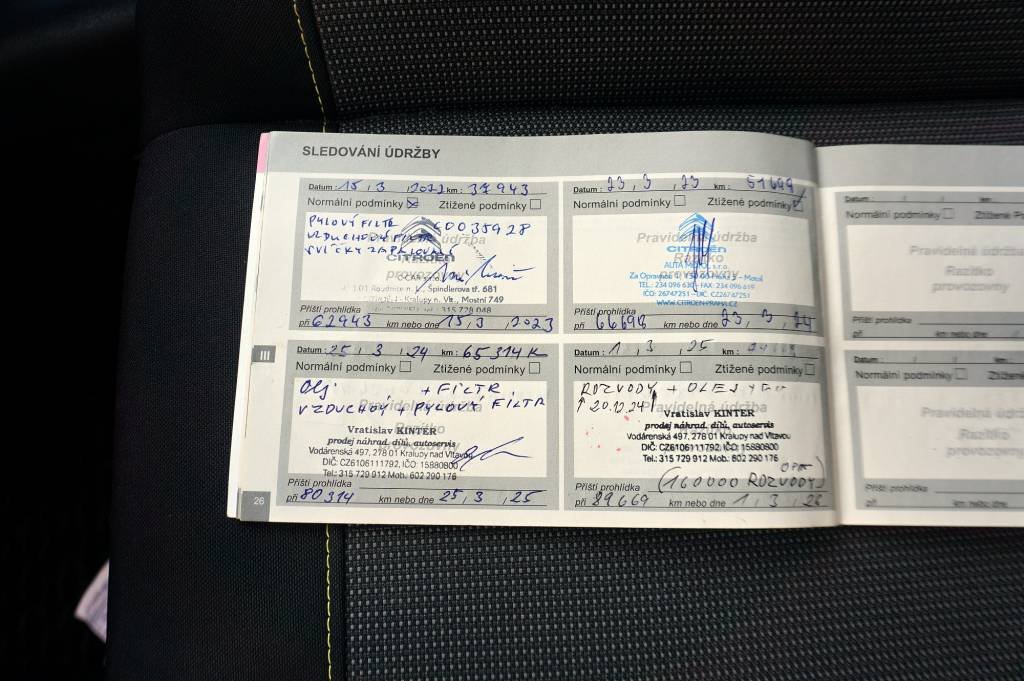 SLEDOVÁNÍ ÚDRŽBY
Datum: 15, 3, 2022 km: 37943
Normální podmínky Ztížené podmínky
PYLOVÝ FILTR CD035928
VZDUCHOVÝ FILTR
SVÍČKY ZAPALOVÁNÍ
CITROËN
Roudnice n. L., Špindlerova tř. 681
Kralupy n. Vlt., Mostní 749
tel.: 315 728 048
Příští prohlídka
při 62943 km nebo dne 15, 3, 2023
Datum: 23, 3, 23 km: 51699
Normální podmínky Ztížené podmínky
Pravidelná údržba
CITROËN
Razítko
AUTA MOTOL s.r.o.
provozovny
Za Opravnou 1, 150 00 Praha 5 - Motol
TEL: 234 096 630 - FAX: 234 096 619
IČO: 26747251 - DIČ: CZ26747251
WWW.CITROEN-PRAHA.CZ
Příští prohlídka
při 66698 km nebo dne 23, 3, 24
III
Datum: 25, 3, 24 km: 65314 K
Normální podmínky Ztížené podmínky
Olj + FILTR
VZDUCHOVÝ + PYLOVÝ FILTR
Vratislav KINTER
prodej náhrad. dílů, autoservis
Vodárenská 497, 278 01 Kralupy nad Vltavou
DIČ: CZ6106111792, IČO: 15880800
Tel.: 315 729 912 Mob.: 602 290 176
Příští prohlídka
při 80314 km nebo dne 25, 3, 25
Datum: 1, 3, 25 km:
Normální podmínky Ztížené podmínky
ROZVODY + OLEJ +
20.12.24
Pravidelná údržba
Vratislav KINTER
prodej náhrad. dílů, autoservis
Vodárenská 497, 278 01 Kralupy nad Vltavou
DIČ: CZ6106111792, IČO: 15880800
Tel.: 315 729 912 Mob.: 602 290 176
Příští prohlídka (160000 ROZVODY)
při 89669 km nebo dne 1, 3, 26
26
Datum: km:
Normální podmínky Ztížené
Pravidelná údržba
Razítko
provozovny
Příští prohlídka
při km nebo dne
Datum: km:
Normální podmínky Ztížené
Pravidelná údržba
Razítko
provozovny
Příští prohlídka
při km nebo dne